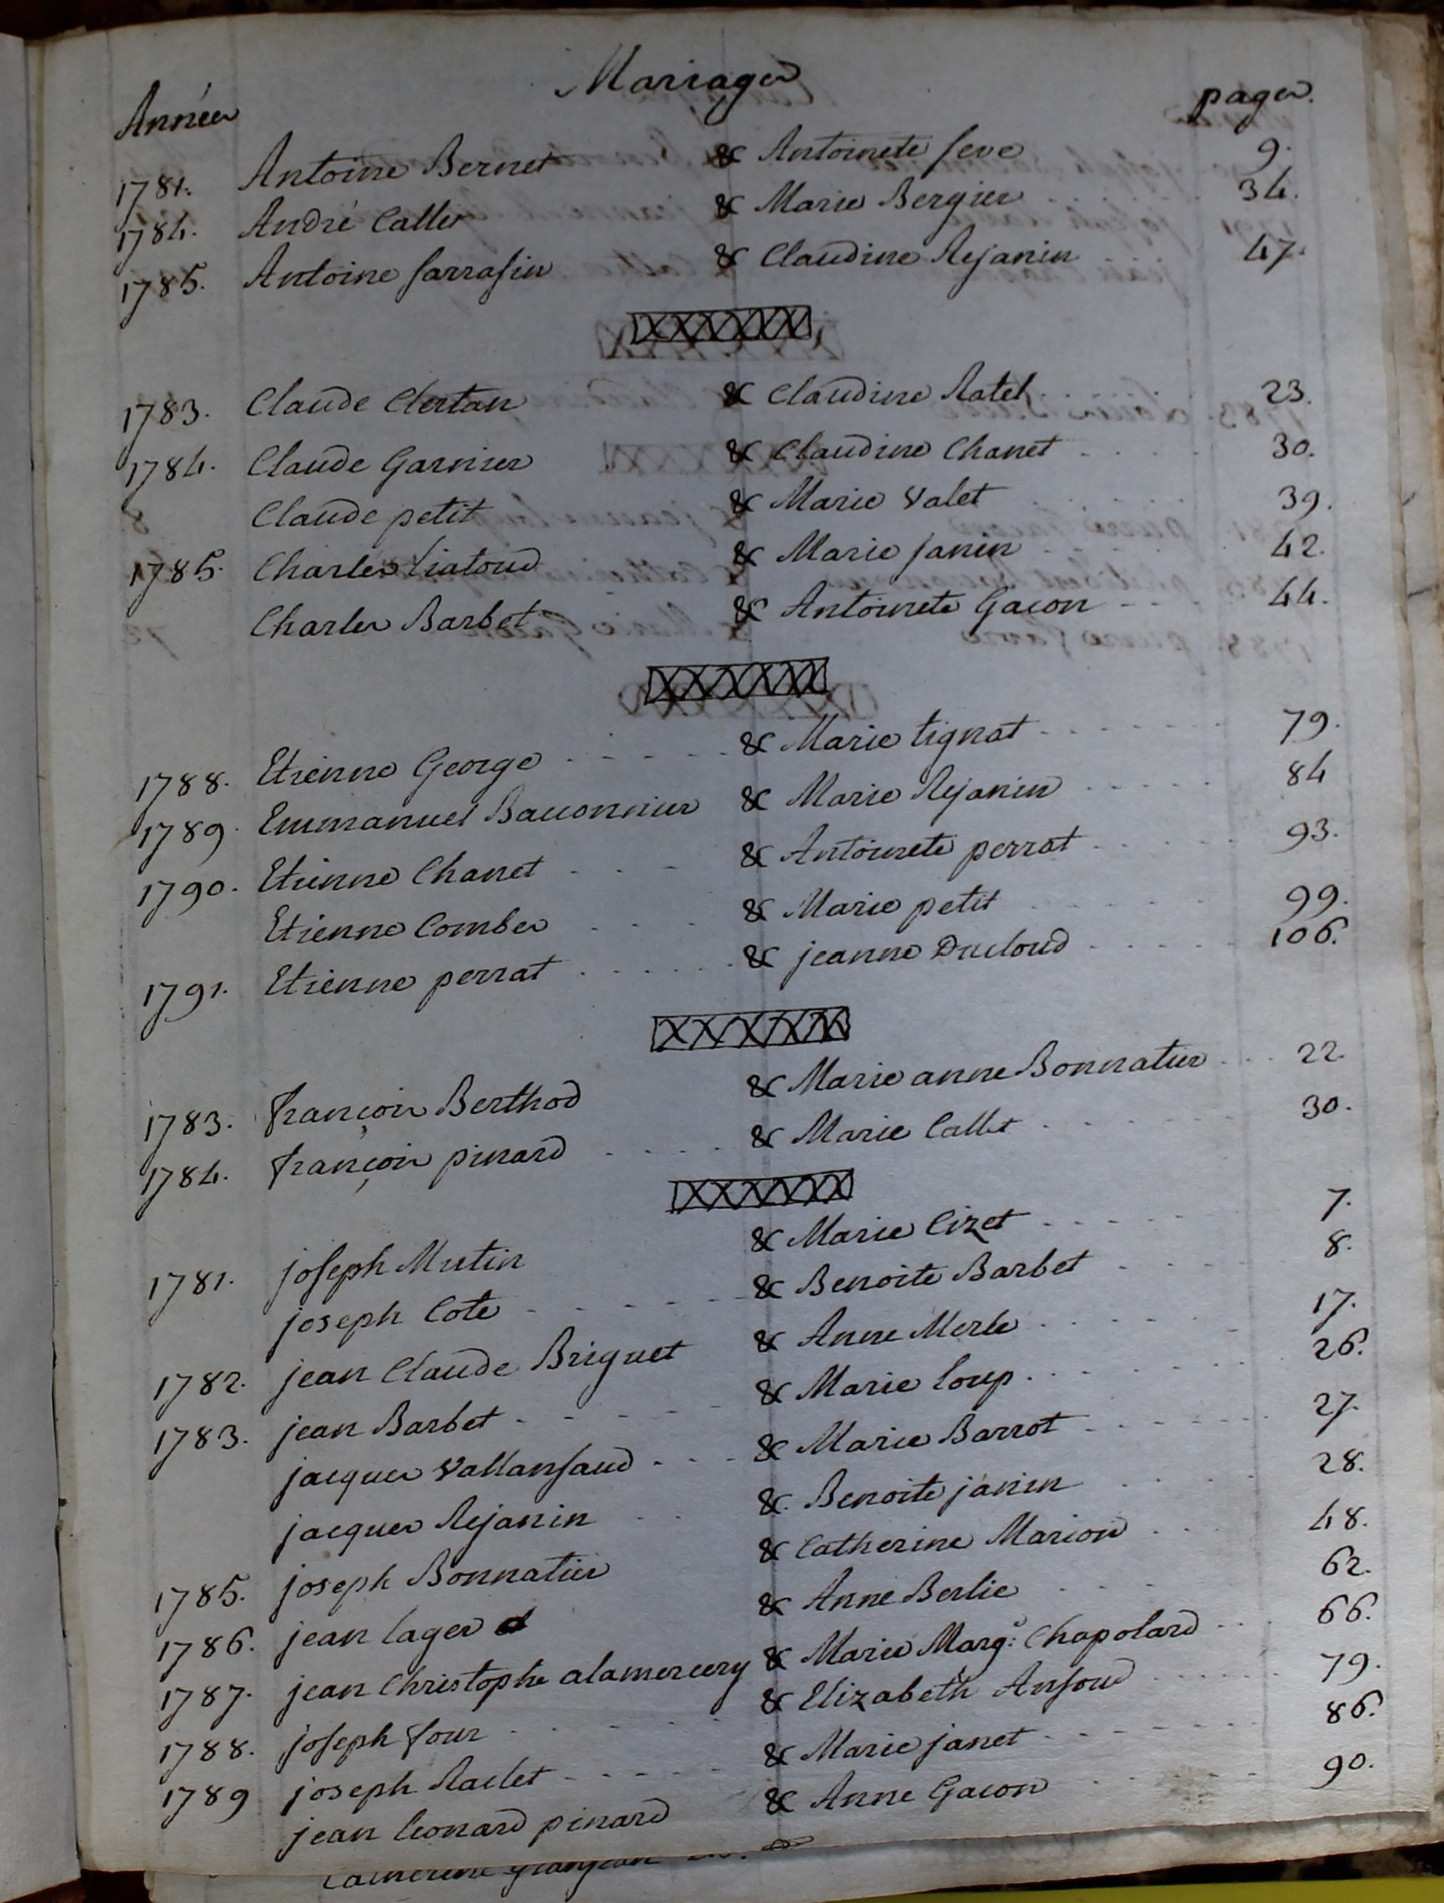 Mariages
Années pages.
1781. Antoine Bernet & Antoinete seve 9.
1784. André Callet & Marie Bergier 34.
1785. Antoine sarrasin & Claudine Rejanin 47.
1783. Claude Clertan & Claudine Ratel 23.
1784. Claude Garnier & Claudine Chanet 30.
Claude petit & Marie Valet 39.
1785. Charles Liatoud & Marie janin 42.
Charles Barbet & Antoinete Gacon 44.
1788. Etienne George & Marie tignat 79.
1789. Emmanuel & Marie Rejanin 84
1790. Etienne Chanet & Antoinete perrat 93.
Etienne Combes & Marie petit 99.
1791. Etienne perrat & jeanne Ducloud 106.
1783. françois Berthod & Marie anne Bonnatier 22.
1784. françois pinard & Marie Callet 30.
1781. joseph Mutin & Marie Cizet 7.
joseph Cote & Benoite Barbet 8.
1782. jean Claude Briguet & Anne Merle 17.
1783. jean Barbet & Marie loup 26.
jacques Vallansaud & Marie Barrot 27.
jacques Rejanin & Benoite janin 28.
1785. joseph Bonnatier & Catherine Marion 48.
1786. jean lager & Anne Berlie 62.
1787. jean Christophe alamercery & Marie Marg.e Chapolard 66.
1788. joseph four & Elizabeth Ansoud 79.
1789 joseph Raclet & Marie janet 86.
jean leonard pinard & Anne Gacon 90.